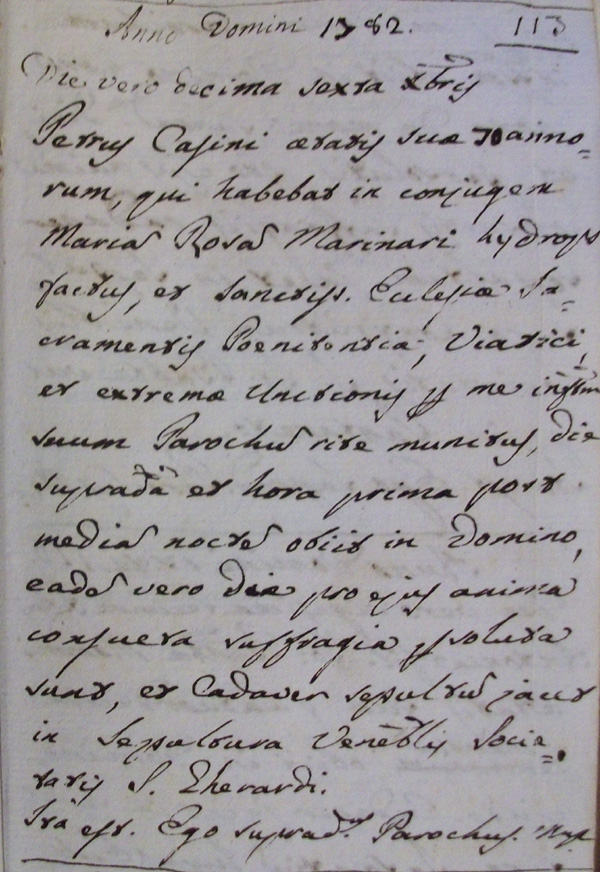 Anno Domini 1782. 113
Die vero decima sexta Xbris
Petrus Casini ætatis suæ 70 anno=
rum, qui habebat in conjugem
Mariā Rosā Marinari hydrops
factus, et Sanctiss. Eclesiæ Sa=
cramentis Poenitentia, Viatici,
et extremæ Unctionis
suum Parochū rite munitus, die
supradtā et hora prima post
mediā noctē obiit in Domino,
eadē vero die pro ejus anima
consueta suffragia psoluta
sunt, et Cadaver sepultū jacet
in Sepultura Venēblis Socie=
tatis S. Gherardi.
Ita est. Ego supradus Parochus.